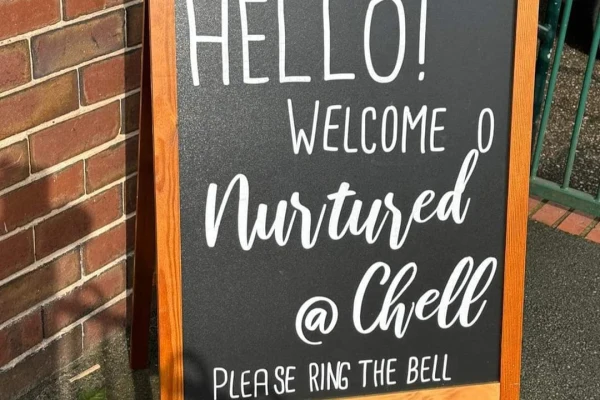 HELLO!
WELCOME O
Nurtured
@ Chell
PLEASE RING THE BELL